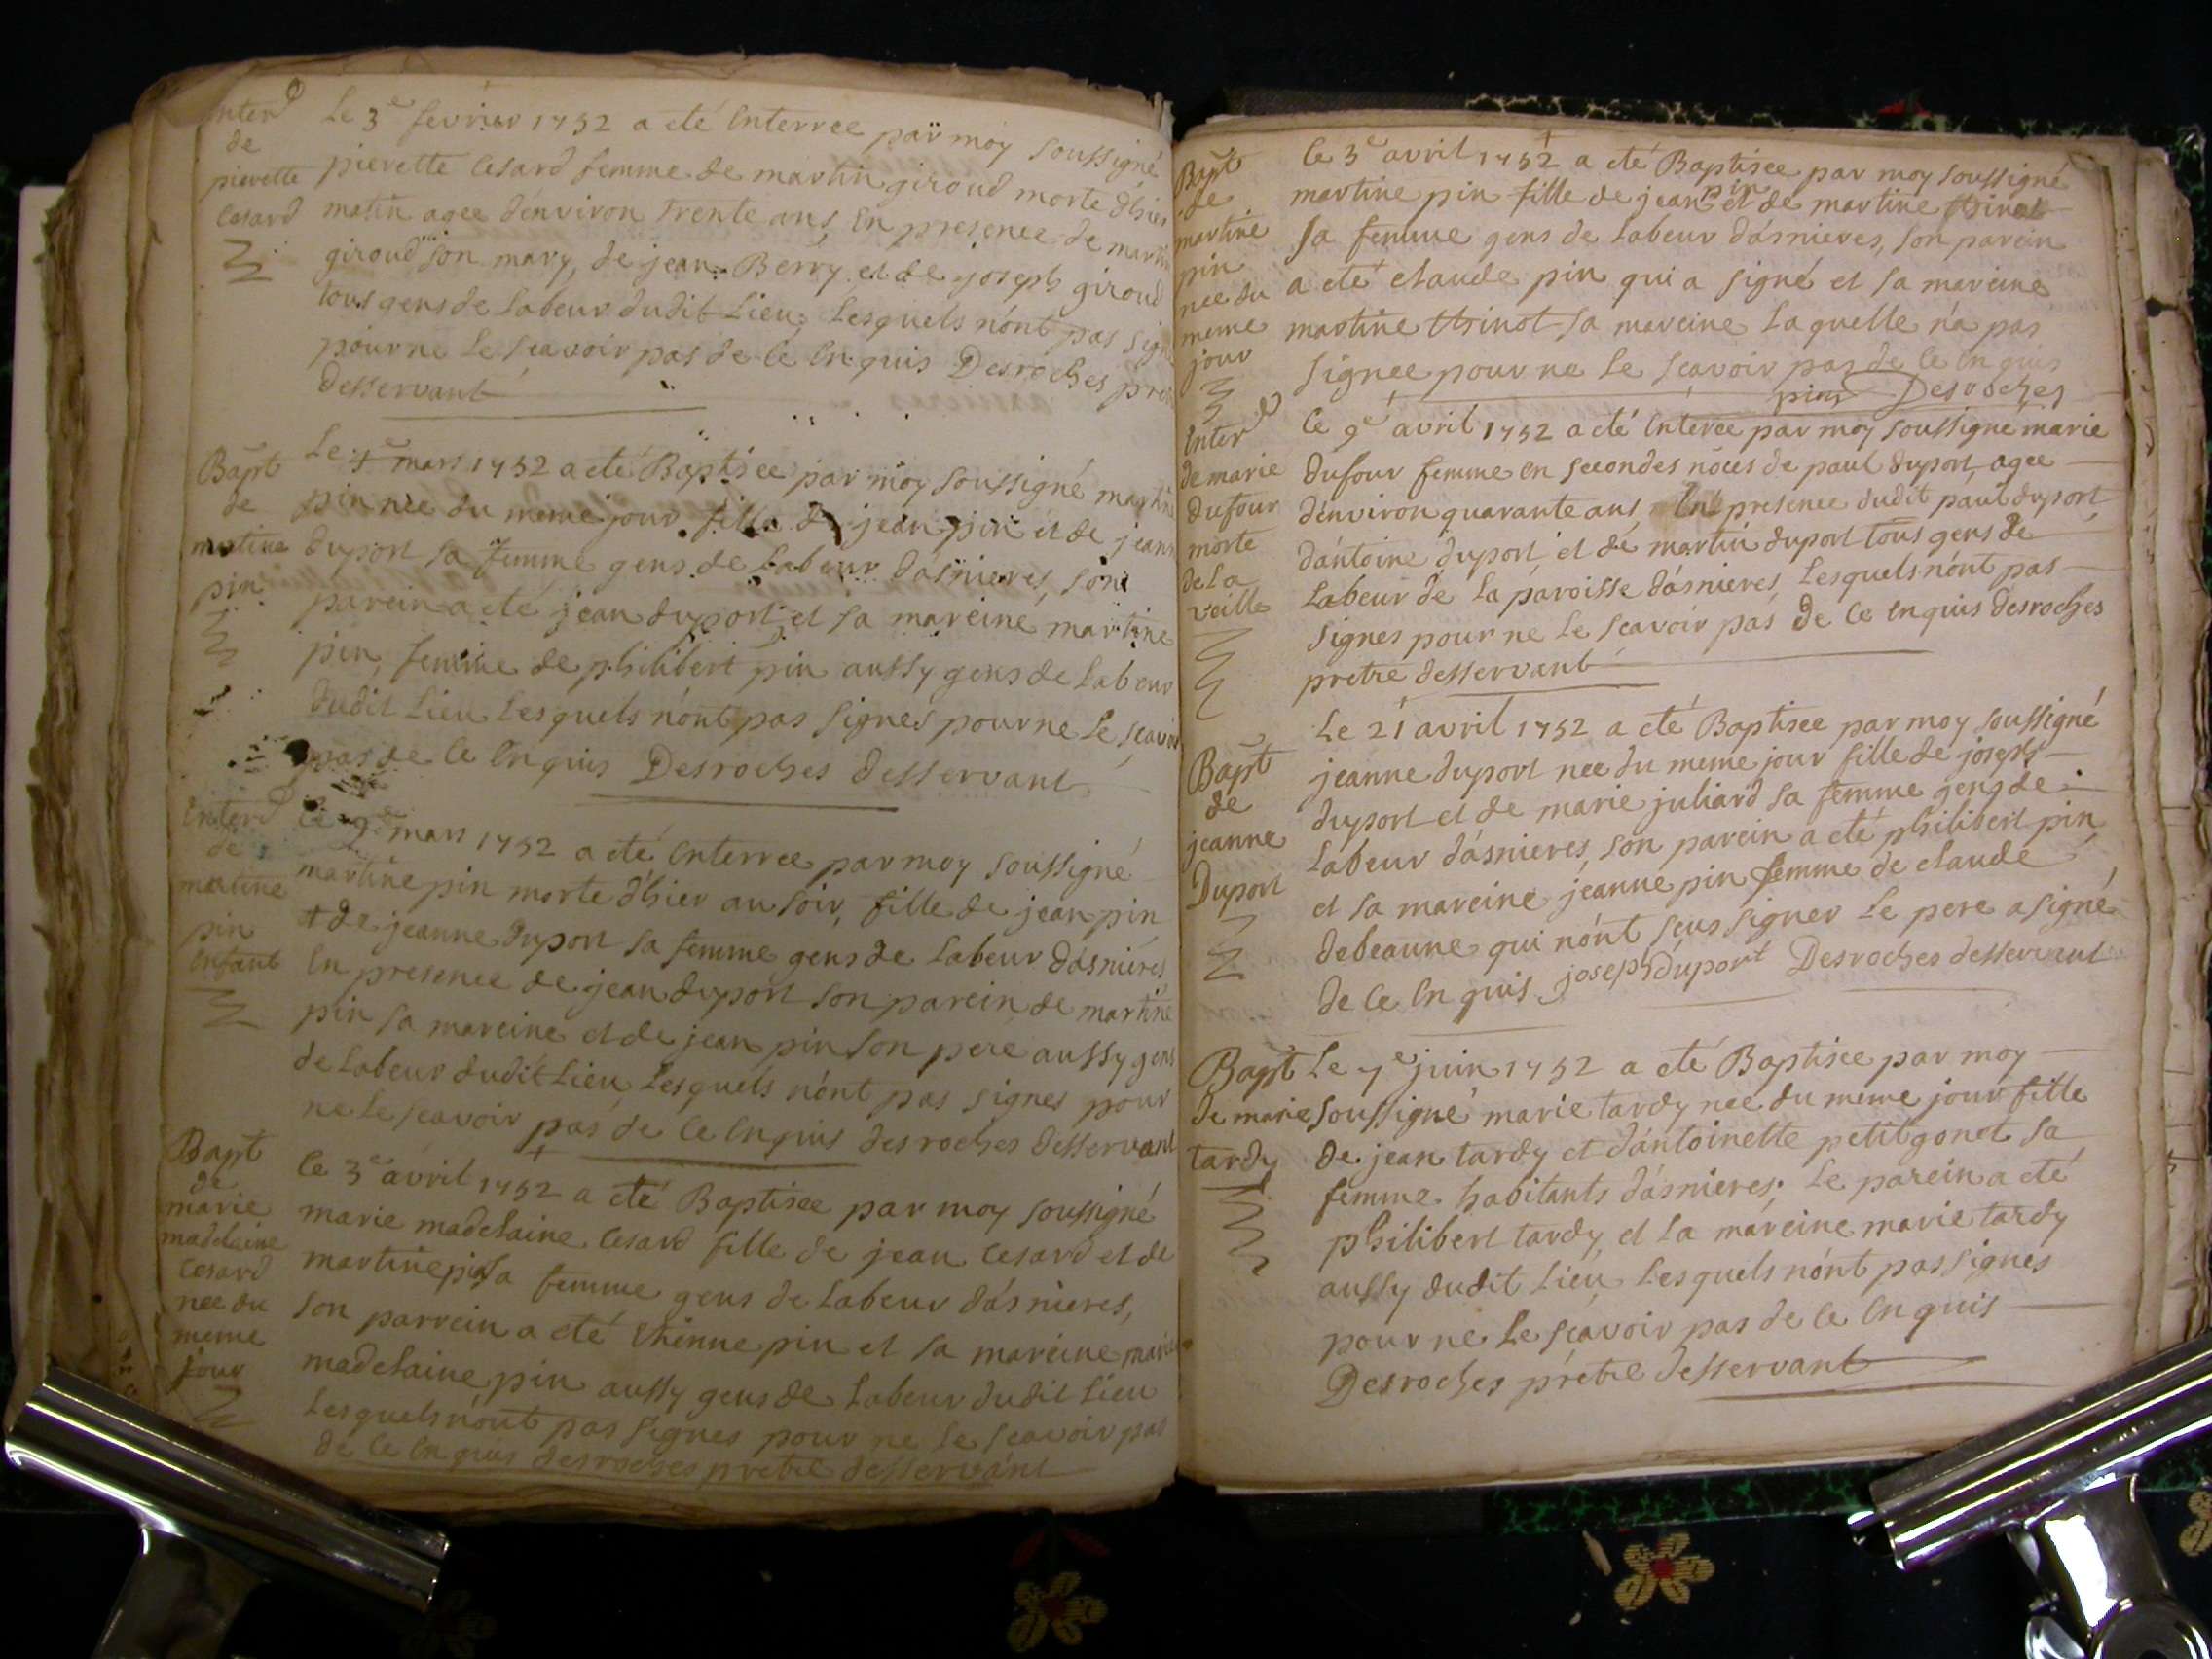 Inter^d
de
pierette
Cesard
Le 3^e fevrier 1752 a eté Interree par moy soussigné
pierette Cesard femme de martin giroud morte d'hier
matin agee d'environ trente ans, En presence de martin
giroud son mary, de jean Berry et de joseph giroud
tous gens de Labeur dudit Lieu, Lesquels n'ont pas sign
pour ne Le sçavoir pas de ce Enquis Desroches pret
desservant
Bapt
de
martine
pin
Le mars 1752 a eté Baptisee par moy soussigné martine
pin née du meme jour fille de jean pin et de jeanne
duport sa femme gens de Labeur d'asnieres, son
parein a eté jean duport et sa mareine martine
pin, femme de philibert pin aussy gens de Labeur
dudit Lieu Lesquels n'ont pas signés pour ne Le sçavoir
pas de ce Enquis Desroches desservant
Inter^d
de
martine
pin
Enfant
Le 9^e mars 1752 a eté Enterree par moy soussigné
martine pin morte d'hier au soir, fille de jean pin
et de jeanne Duport sa femme gens de Labeur d'asnieres
En presence de jean duport son parein, de martine
pin sa mareine et de jean pin son pere aussy gens
de Labeur dudit Lieu, Lesquels n'ont pas signés pour
ne Le sçavoir pas de ce Enquis desroches desservant
Bapt
de
marie
madelaine
Cesard
née du
meme
jour
Le 3^e avril 1752 a eté Baptisee par moy soussigné
marie madelaine Cesard fille de jean Cesard et de
martine pin sa femme gens de Labeur d'asnieres,
son parrein a eté Ethienne pin et sa mareine marie
madelaine pin aussy gens de Labeur dudit Lieu
Lesquels n'ont pas signes pour ne Le sçavoir pas
de ce Enquis desroches pretre desservant
Bapt
de
martine
pin
née du
meme
jour
Le 3^e avril 1752 a eté Baptisee par moy soussigné
martine pin fille de jean pin et de martine thinot
sa femme gens de Labeur d'asnieres, son parein
a eté claude pin qui a signé et sa mareine
martine thinot sa mareine Laquelle n'a pas
signee pour ne Le sçavoir pas de ce Enquis
pin Desroches
Inter^d
de marie
dufour
morte
de La
veille
Le 9^e avril 1752 a eté Enteree par moy soussigné marie
dufour femme en secondes nôces de paul duport, agee
d'environ quarante ans, En presence dudit paul duport
d'antoine duport, et de martin duport tous gens de
Labeur de La paroisse d'asnieres, Lesquels n'ont pas
signes pour ne Le sçavoir pas de ce Enquis desroches
pretre desservant
Bapt
de
jeanne
Duport
Le 21 avril 1752 a eté Baptisee par moy soussigné
jeanne duport née du meme jour fille de joseph
duport et de marie juliard sa femme gens de
Labeur d'asnieres, son parein a eté philibert pin
et sa mareine jeanne pin femme de claude
debeaune qui n'ont sçus signer Le pere a signé
de ce Enquis joseph duport Desroches desservant
Bapt
de marie
tardy
Le 7^e juin 1752 a eté Baptisee par moy
soussigné marie tardy née du meme jour fille
de jean tardy et d'antoinette petitgonet sa
femme habitants d'asnieres; Le parein a eté
philibert tardy, et La mareine marie tardy
aussy dudit Lieu Lesquels n'ont pas signés
pour ne Le sçavoir pas de ce Enquis
Desroches prêtre desservant